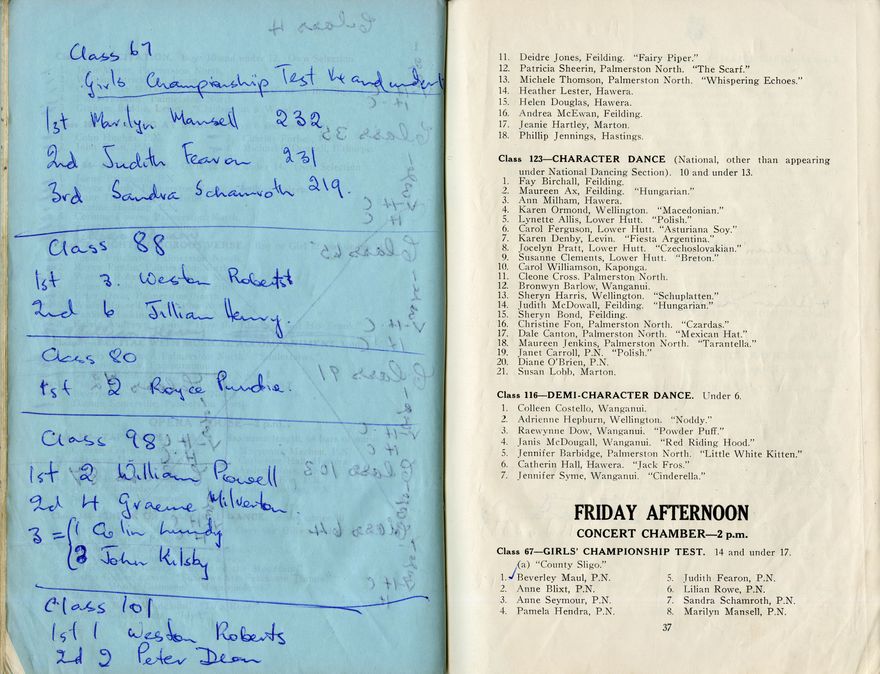 Class 67
Girls Championship Test 14 and under 17
1st Marilyn Mansell 232
2nd Judith Fearon 231
3rd Sandra Schamroth 219.
Class 88
1st 3. Weston Roberts
2nd 6 Jillian Henry.
Class 80
1st 2 Royce Purdie.
Class 98
1st 2 William Powell
2nd 4 Graeme Milverton.
3 = 1 Colin Lundy
3 John Kilsby
Class 101
1st 1 Weston Roberts
2nd 2 Peter Dean
11. Deidre Jones, Feilding. "Fairy Piper."
12. Patricia Sheerin, Palmerston North. "The Scarf."
13. Michele Thomson, Palmerston North. "Whispering Echoes."
14. Heather Lester, Hawera.
15. Helen Douglas, Hawera.
16. Andrea McEwan, Feilding.
17. Jeanie Hartley, Marton.
18. Phillip Jennings, Hastings.
Class 123—CHARACTER DANCE (National, other than appearing
under National Dancing Section). 10 and under 13.
1. Fay Birchall, Feilding.
2. Maureen Ax, Feilding. "Hungarian."
3. Ann Milham, Hawera.
4. Karen Ormond, Wellington. "Macedonian."
5. Lynette Allis, Lower Hutt. "Polish."
6. Carol Ferguson, Lower Hutt. "Asturiana Soy."
7. Karen Denby, Levin. "Fiesta Argentina."
8. Jocelyn Pratt, Lower Hutt. "Czechoslovakian."
9. Susanne Clements, Lower Hutt. "Breton."
10. Carol Williamson, Kaponga.
11. Cleone Cross. Palmerston North.
12. Bronwyn Barlow, Wanganui.
13. Sheryn Harris, Wellington. "Schuplatten."
14. Judith McDowall, Feilding. "Hungarian."
15. Sheryn Bond, Feilding.
16. Christine Fon, Palmerston North. "Czardas."
17. Dale Canton, Palmerston North. "Mexican Hat."
18. Maureen Jenkins, Palmerston North. "Tarantella."
19. Janet Carroll, P.N. "Polish."
20. Diane O'Brien, P.N.
21. Susan Lobb, Marton.
Class 116—DEMI-CHARACTER DANCE. Under 6.
1. Colleen Costello, Wanganui.
2. Adrienne Hepburn, Wellington. "Noddy."
3. Raewynne Dow, Wanganui. "Powder Puff."
4. Janis McDougall, Wanganui. "Red Riding Hood."
5. Jennifer Barbidge, Palmerston North. "Little White Kitten."
6. Catherin Hall, Hawera. "Jack Fros."
7. Jennifer Syme, Wanganui. "Cinderella."
FRIDAY AFTERNOON
CONCERT CHAMBER—2 p.m.
Class 67—GIRLS' CHAMPIONSHIP TEST. 14 and under 17.
(a) "County Sligo."
1. Beverley Maul, P.N.
2. Anne Blixt, P.N.
3. Anne Seymour, P.N.
4. Pamela Hendra, P.N.
5. Judith Fearon, P.N.
6. Lilian Rowe, P.N.
7. Sandra Schamroth, P.N.
8. Marilyn Mansell, P.N.
37